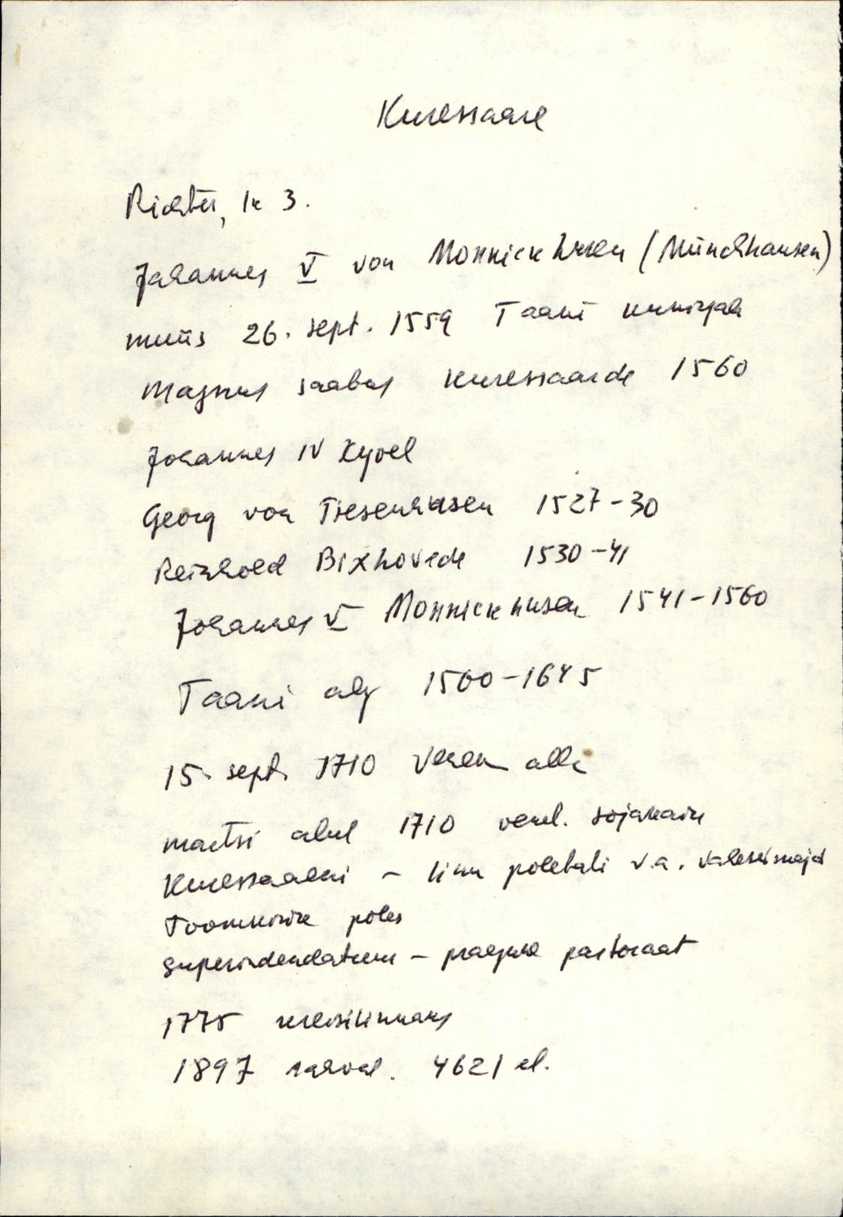 Kuressaare
Richter, lk 3.
Johannes V von Monnickhusen (Münchhausen)
müüs 26. sept. 1559 Taani kuningale
Magnus saabus Kuressaarde 1560
Johannes IV Kyvel
Georg von Tiesenhusen 1527-30
Reinhold Bixhovede 1530-41
Johannes V Monnickhusen 1541-1560
Taani aeg 1560-1645
15. sept. 1710 Venem alla
maetsi alul 1710 venel. sõjavain
Kuressaareni - linn põletati v.a.
Toomkirik põles
superindendatuur - praegune pastoraat
1775 kreisilinnaks
1897 rahval. 4621 el.